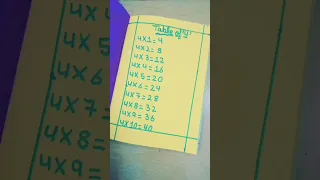 Table of 4
4X1=4
4X2=8
4X3=12
4X4=16
4X5=20
4X6=24
4X7=28
4X8=32
4X9=36
4X10=40